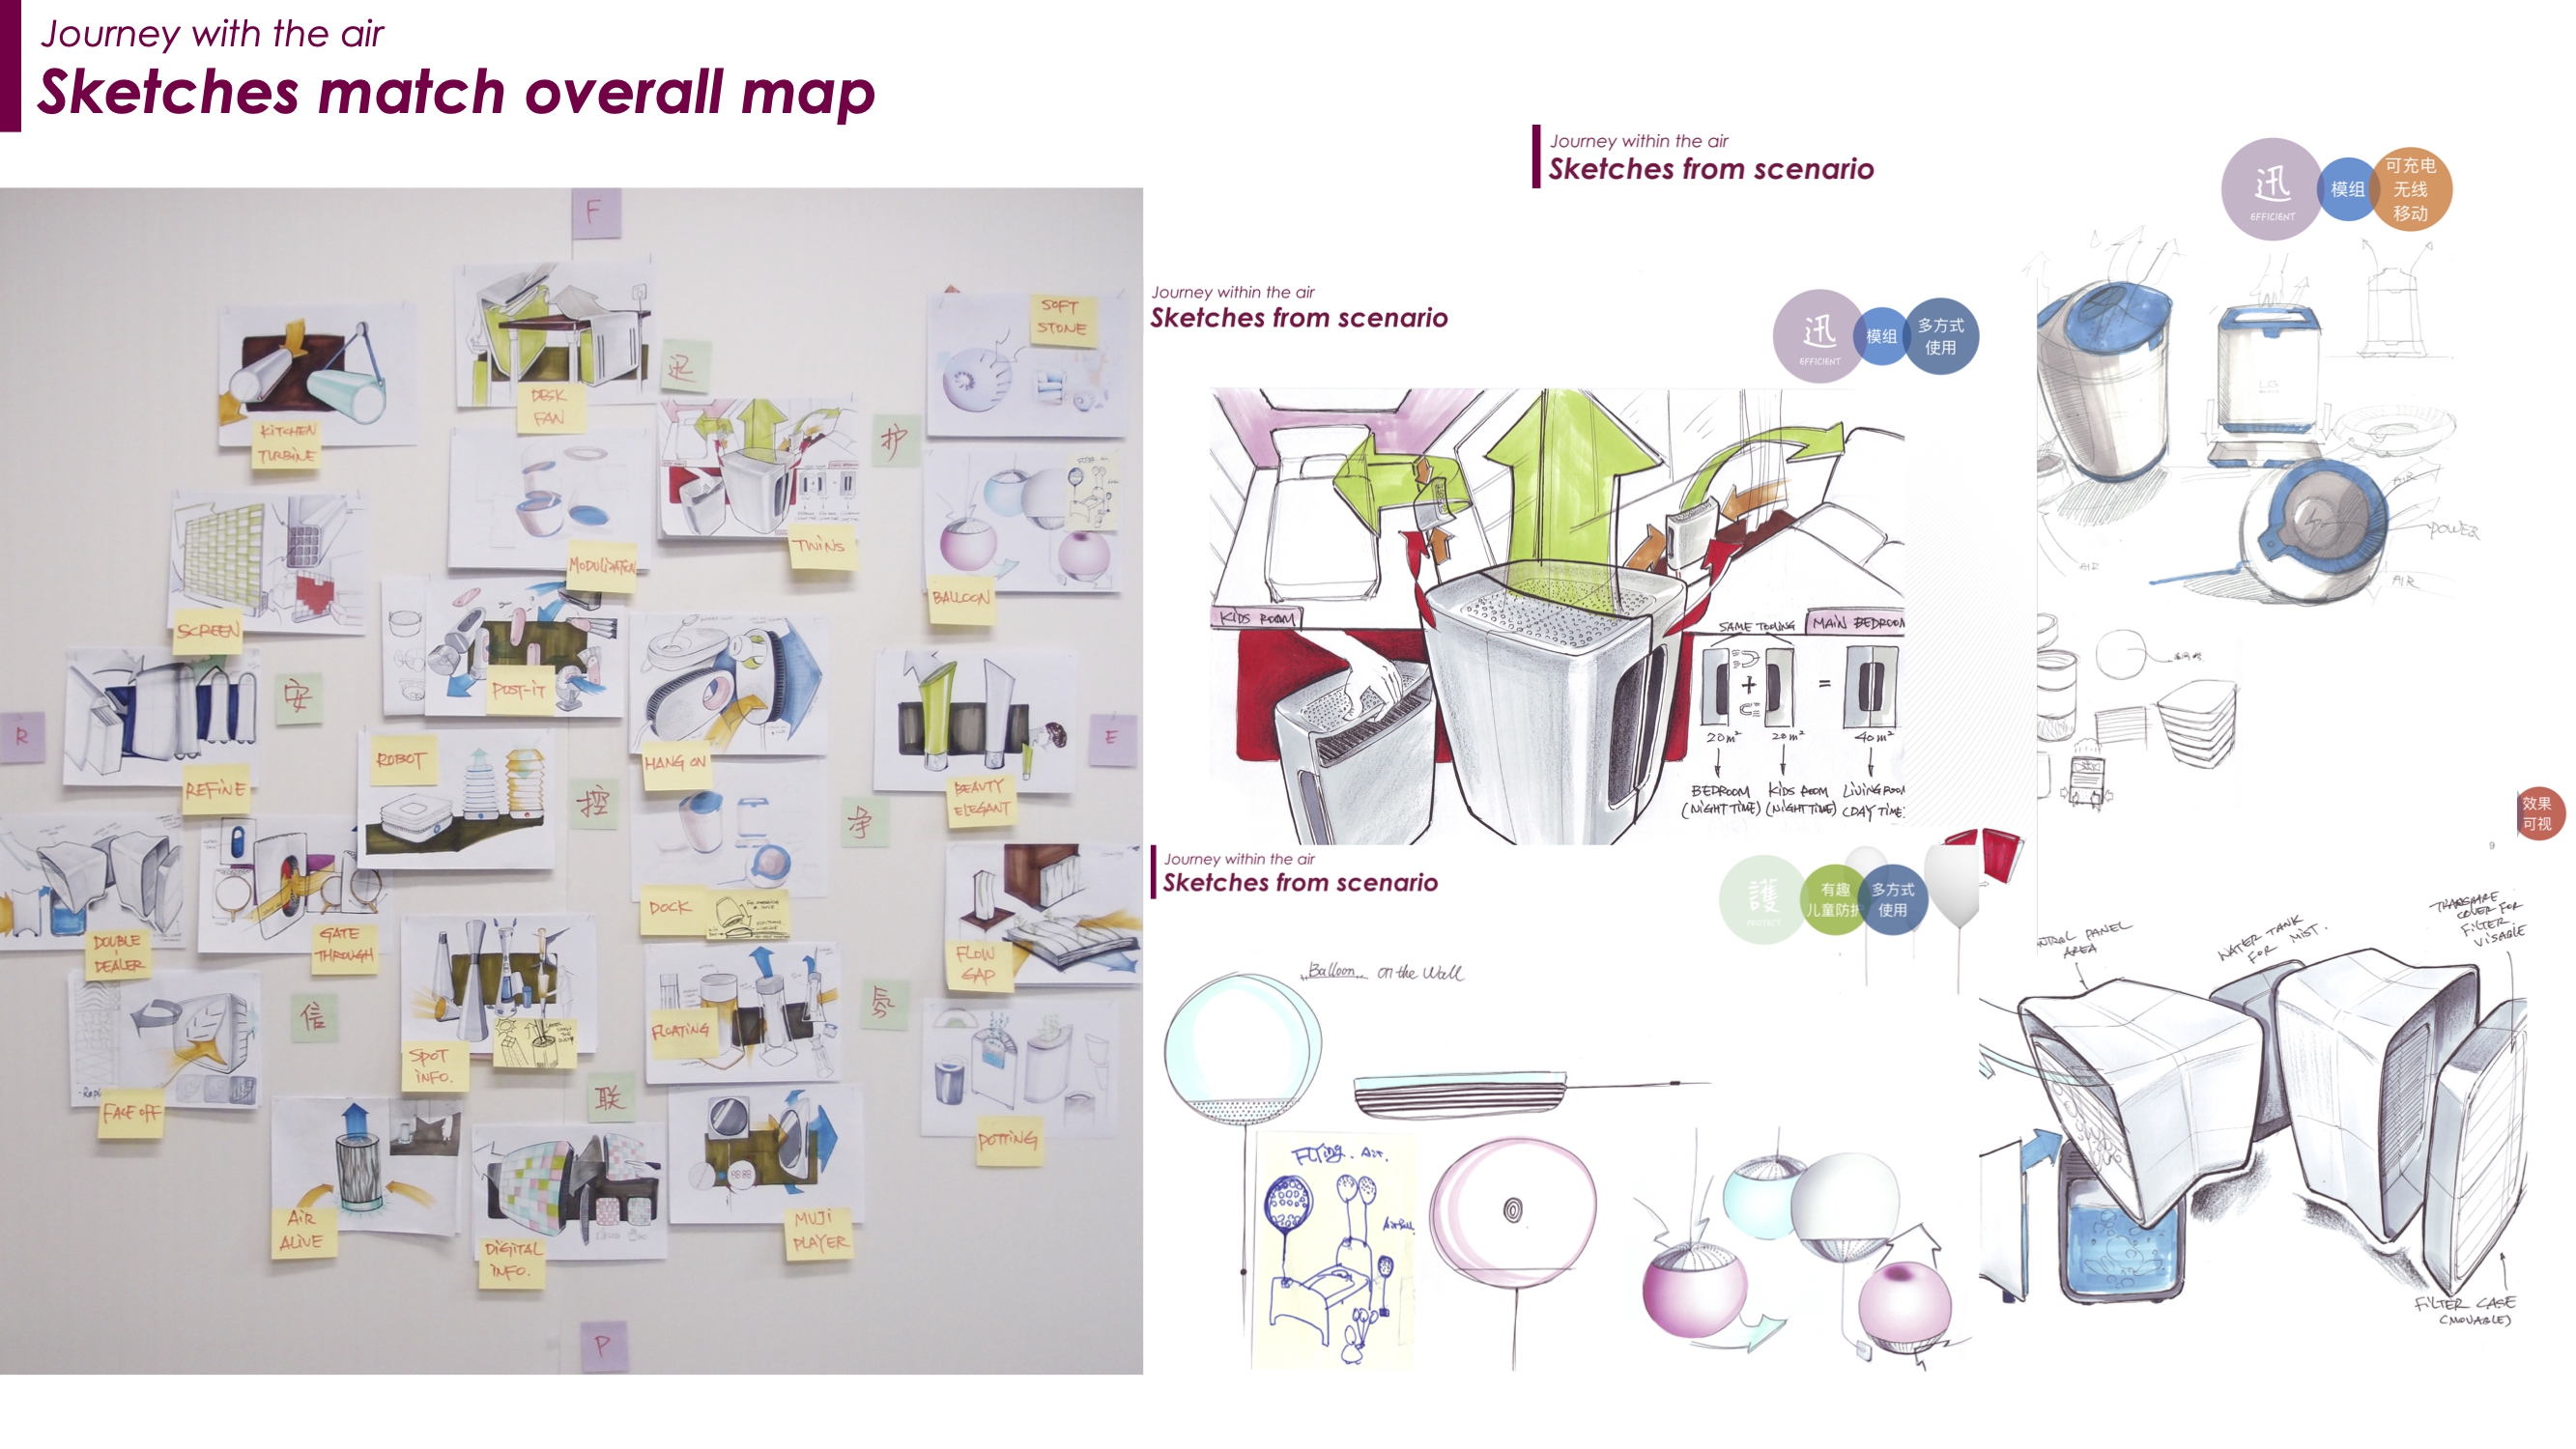 Journey with the air
Sketches match overall map
F
SOFT
STONE
DESK
FAN
迅
KITCHEN
TURBINE
护
TWINS
MODULIZATION
BALLOON
SCREEN
POST-IT
安
R
E
REFINE
ROBOT
HANG ON
控
BEAUTY
ELEGANT
净
DOCK
DOUBLE
DEALER
GATE
THROUGH
FLOW
GAP
信
氛
FLOATING
SPOT
INFO.
FACE OFF
联
POTTING
AIR
ALIVE
DIGITAL
INFO.
MUJI
PLAYER
P
Journey within the air
Sketches from scenario
迅
EFFICIENT
模组
可充电
无线
移动
POWER
AIR
AIR
AIR
Journey within the air
Sketches from scenario
迅
EFFICIENT
模组
多方式
使用
KIDS ROOM
SAME TOMING
MAIN BEDROOM
+
=
20m²
20m²
40m²
BEDROOM
(NIGHT TIME)
KIDS ROOM
(NIGHT TIME)
LIVING ROOM
(DAY TIME)
效果
可视
9
Journey within the air
Sketches from scenario
護
PROTECT
有趣
儿童防护
多方式
使用
Balloon on the Wall
Flying. Air.
Airball
NTROL PANEL
AREA
WATER TANK
FOR MIST.
COVER FOR
FILTER
VISABLE
FILTER CASE
(MOVABLE)